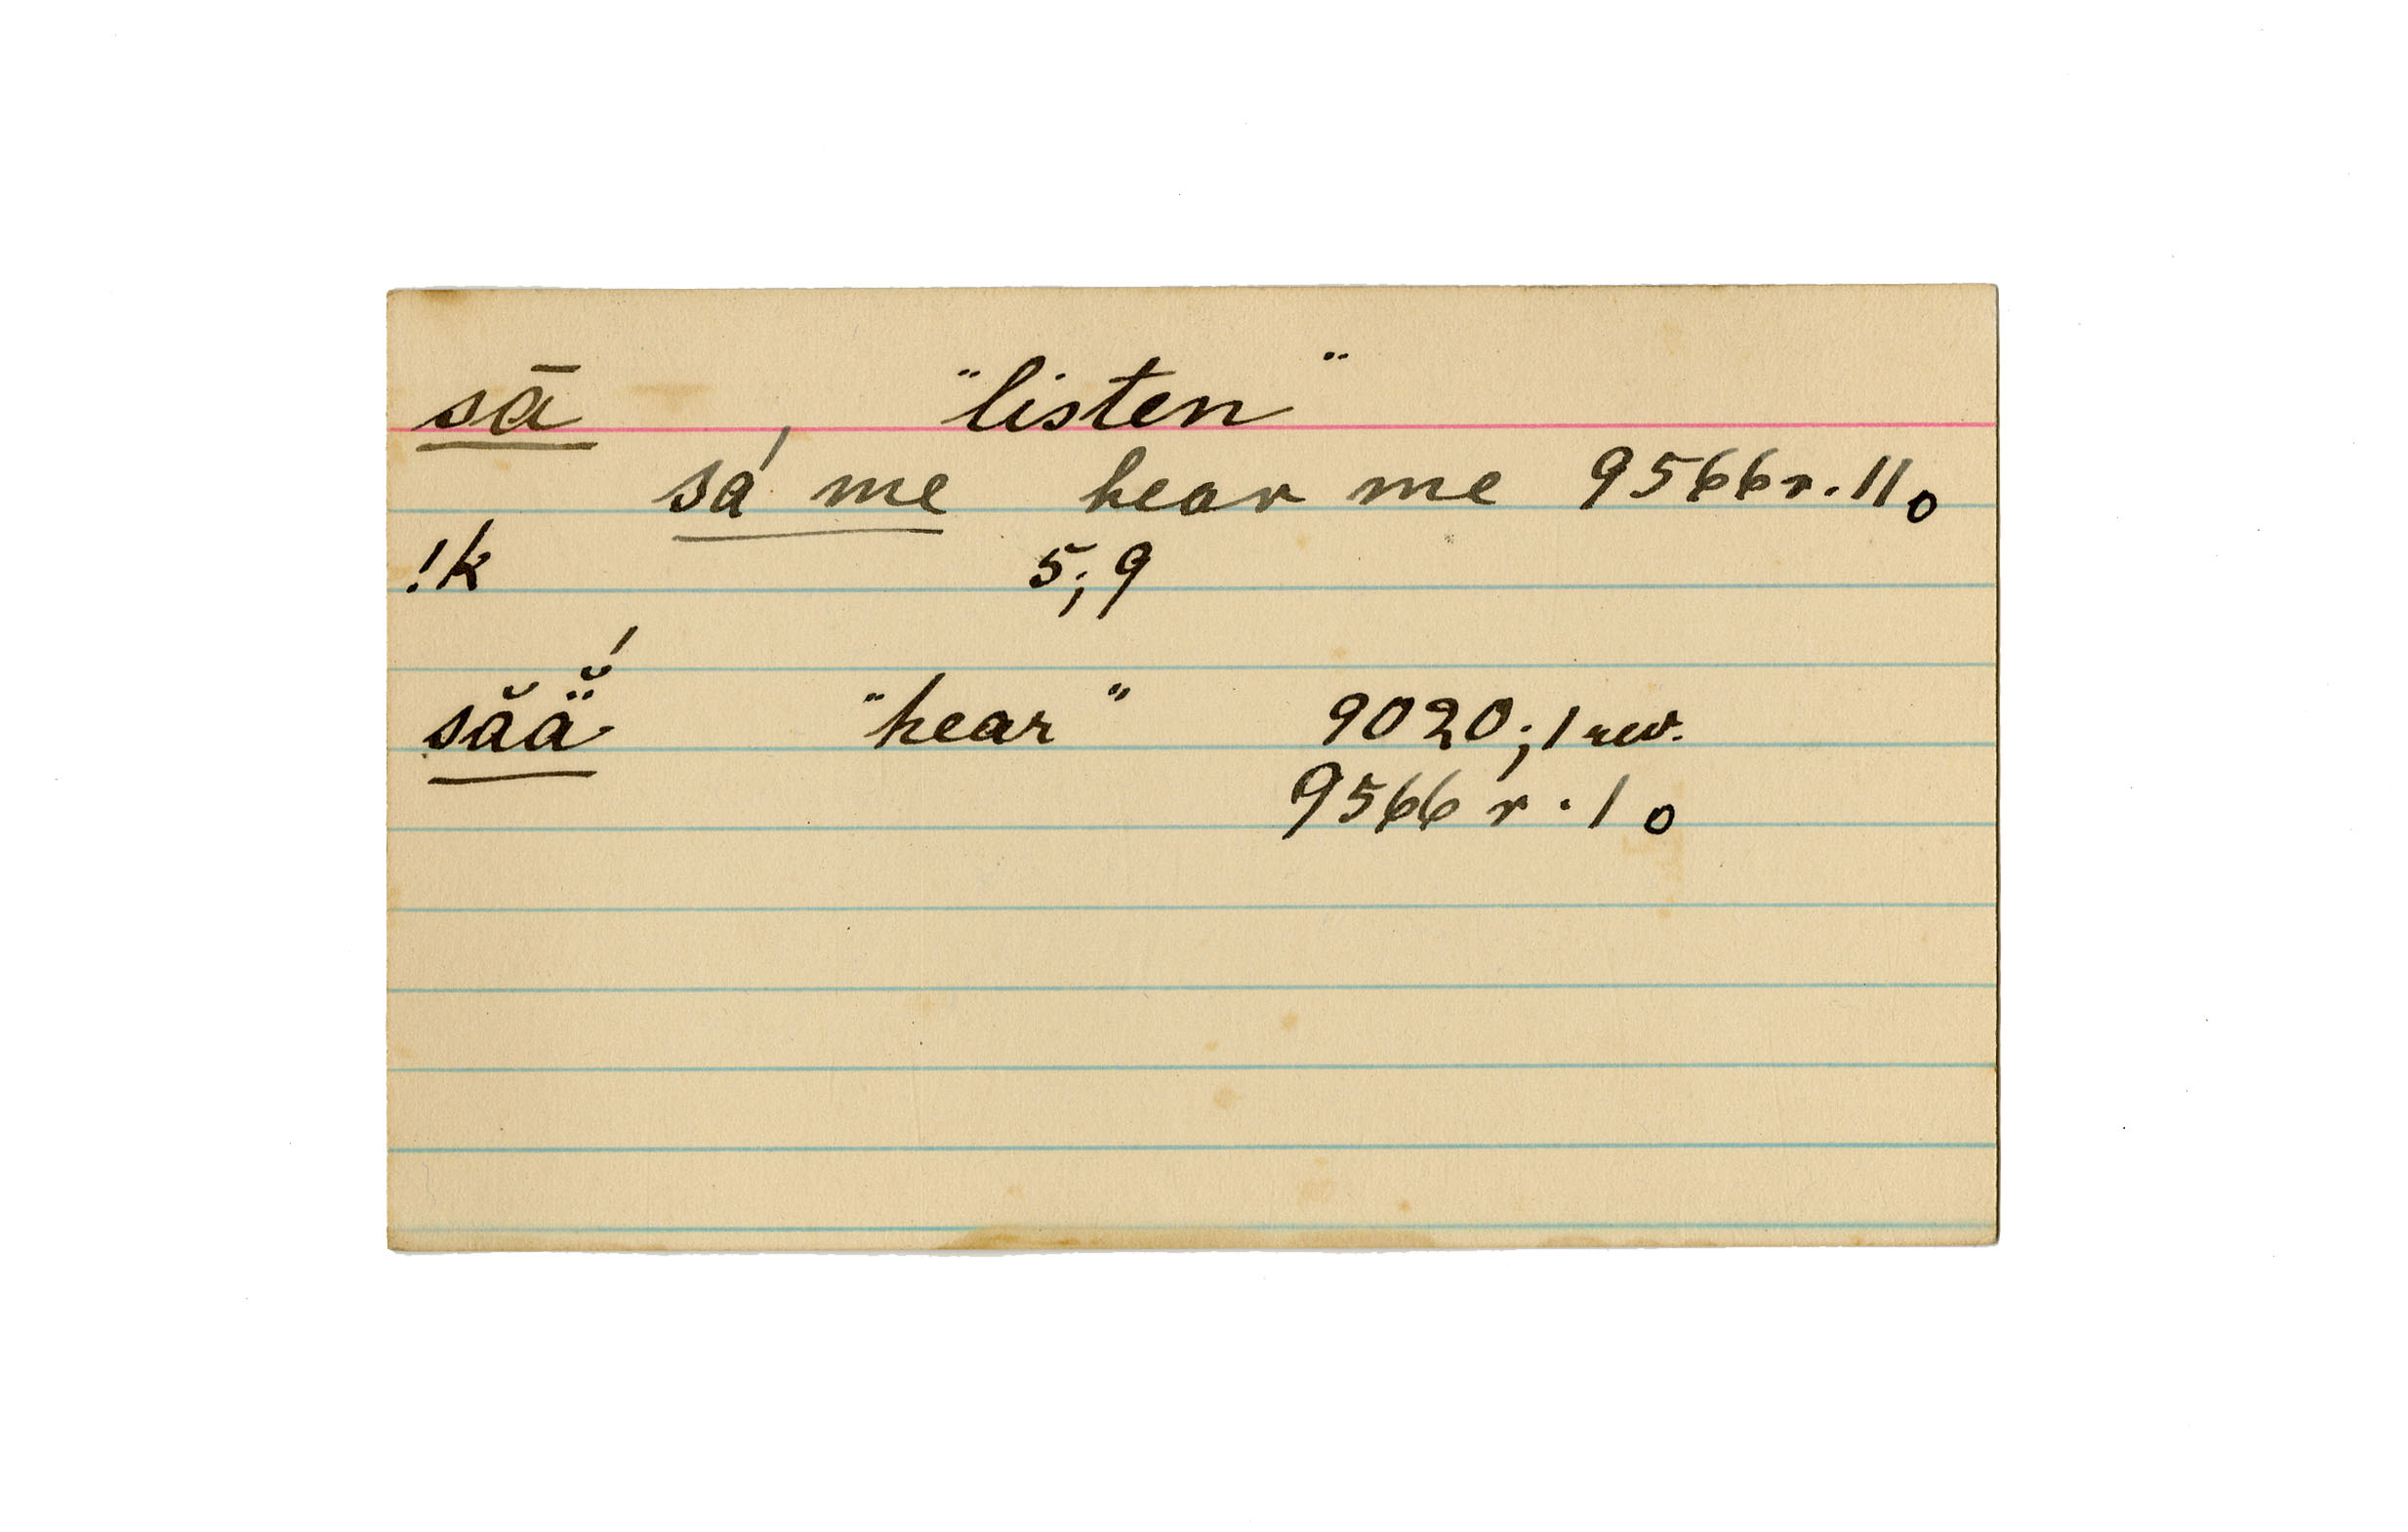 sā "listen"
sá me hear me 9566r.11o
!k 5;9
săä̆́ "hear" 9020;1 rev.
9566 r.1o